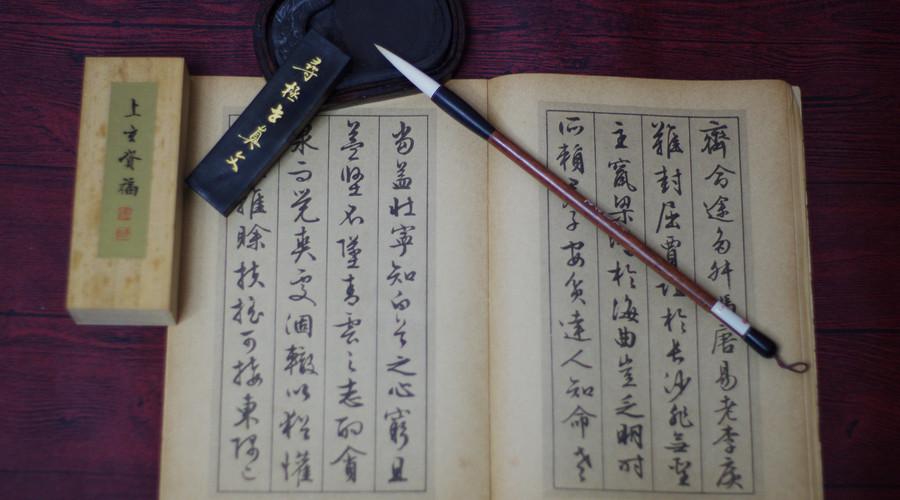 上主資福
尋極真文
齊命途多舛馮唐易老李廣
難封屈賈誼於長沙非無聖
主竄梁鴻於海曲豈乏明時
所賴君子安貧達人知命老
當益壯寧知白首之心窮且
益堅不墜青雲之志酌貪
泉而覺爽處涸轍以猶懽
雖賒扶搖可接東隅已